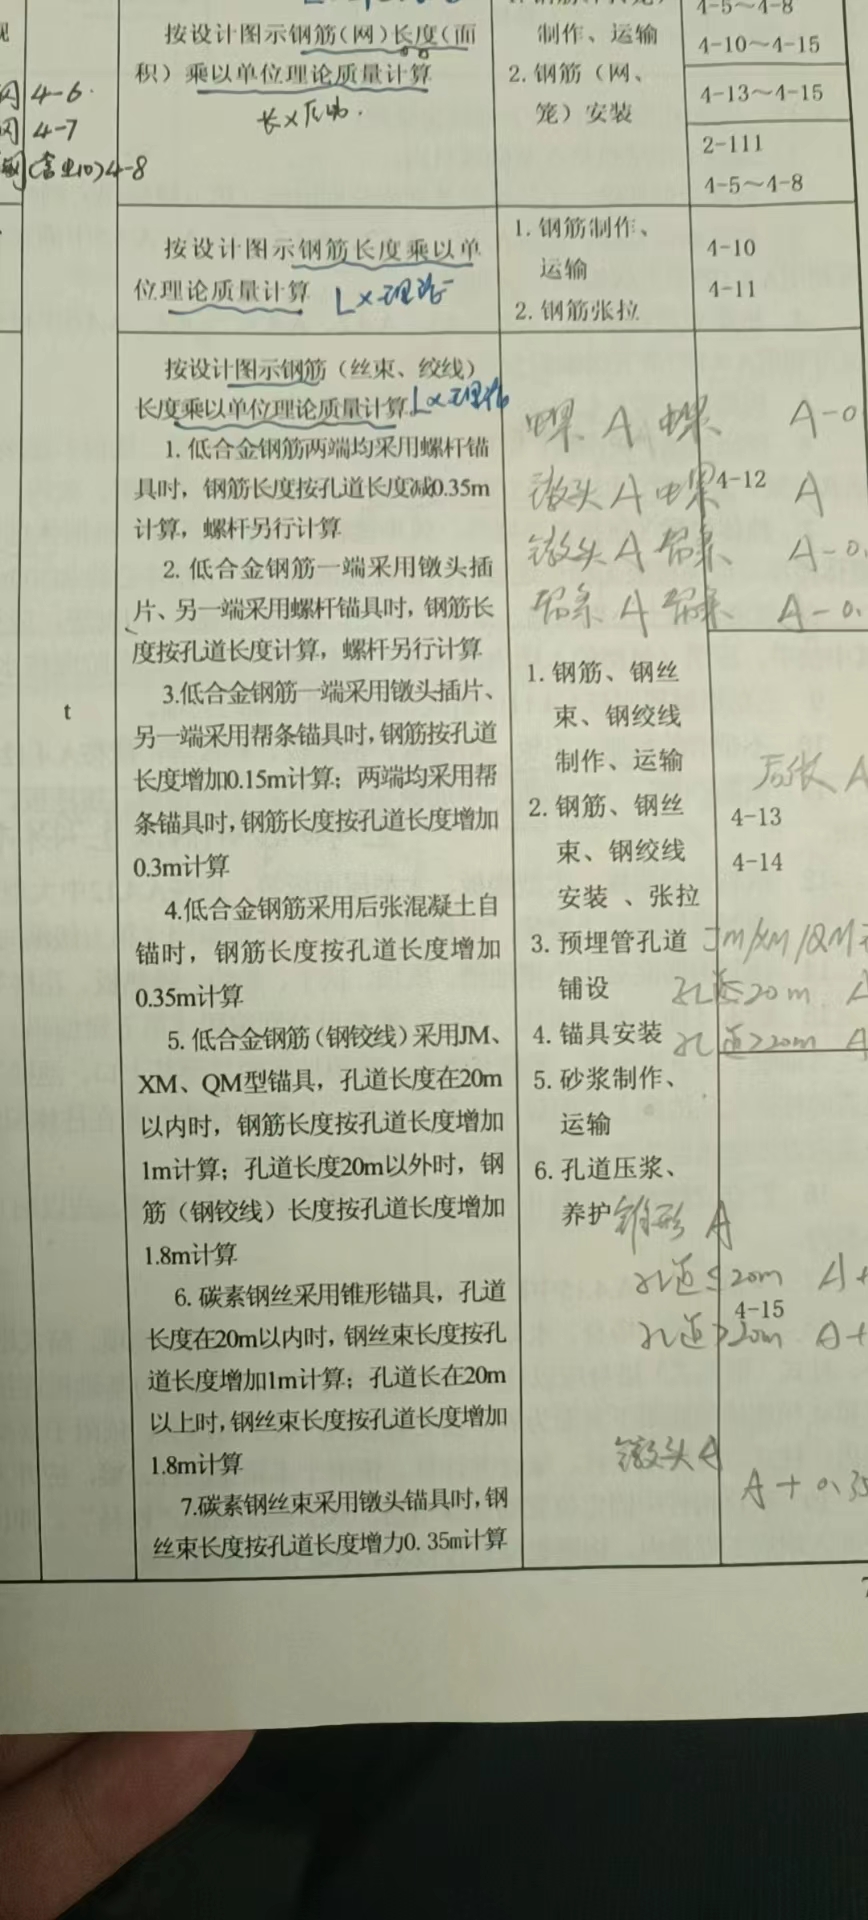 4-5～4-8
按设计图示钢筋(网)长度(面
积）乘以单位理论质量计算
长×
制作、运输
2. 钢筋（网、
笼）安装
4-10～4-15
4-13～4-15
2-111
4-5～4-8
4-6
4-7
4-8
按设计图示钢筋长度乘以单
位理论质量计算
L×理论
1. 钢筋制作、
运输
2. 钢筋张拉
4-10
4-11
t
按设计图示钢筋（丝束、绞线）
长度乘以单位理论质量计算
L×理论
1. 低合金钢筋两端均采用螺杆锚
具时，钢筋长度按孔道长度减0.35m
计算，螺杆另行计算
2. 低合金钢筋一端采用镦头插
片、另一端采用螺杆锚具时，钢筋长
度按孔道长度计算，螺杆另行计算
3.低合金钢筋一端采用镦头插片、
另一端采用帮条锚具时，钢筋按孔道
长度增加0.15m计算；两端均采用帮
条锚具时，钢筋长度按孔道长度增加
0.3m计算
4.低合金钢筋采用后张混凝土自
锚时，钢筋长度按孔道长度增加
0.35m计算
5. 低合金钢筋（钢铰线）采用JM、
XM、QM型锚具，孔道长度在20m
以内时，钢筋长度按孔道长度增加
1m计算；孔道长度20m以外时，钢
筋（钢铰线）长度按孔道长度增加
1.8m计算
6. 碳素钢丝采用锥形锚具，孔道
长度在20m以内时，钢丝束长度按孔
道长度增加1m计算；孔道长在20m
以上时，钢丝束长度按孔道长度增加
1.8m计算
7.碳素钢丝束采用镦头锚具时，钢
丝束长度按孔道长度增力0.35m计算
A A-0
镦头 A A
4-12
镦头 A A-0.
A A-0.
1. 钢筋、钢丝
束、钢绞线
制作、运输
2. 钢筋、钢丝
束、钢绞线
安装 、张拉
3. 预埋管孔道
铺设
4. 锚具安装
5. 砂浆制作、
运输
6. 孔道压浆、
养护
后张 A
4-13
4-14
JM/XM/QM
孔道≤20m A
孔道>20m A
锥形 A
孔道≤20m A+
4-15
孔道>20m A+
镦头A
A+0.35
7